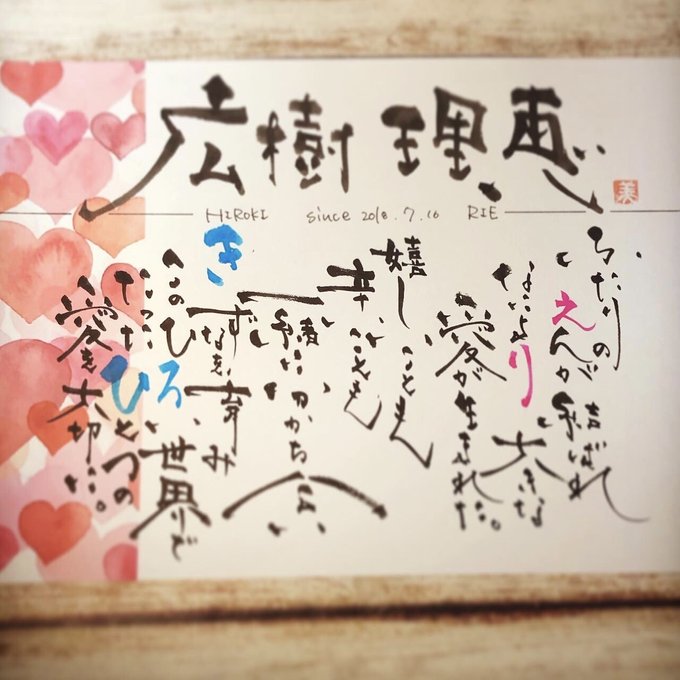 広樹 理恵
美
HIROKI since 2018.7.16 RIE
ふたりの
えんが結ばれ
なにより大きな
愛が生まれた。
嬉しいことも
辛いことも
一緒に分かち合い
きずなを育み
このひろい世界で
たったひとつの
愛を大切に。